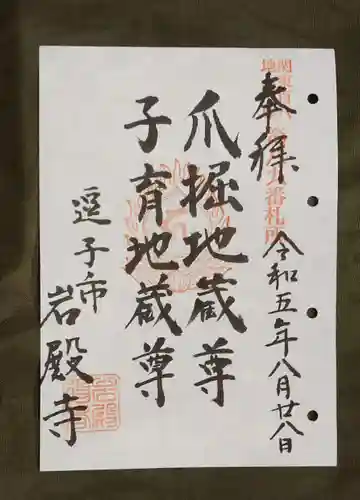 奉拝
令和五年八月廿八日
爪掘地蔵尊
子育地蔵尊
逗子市
岩殿寺